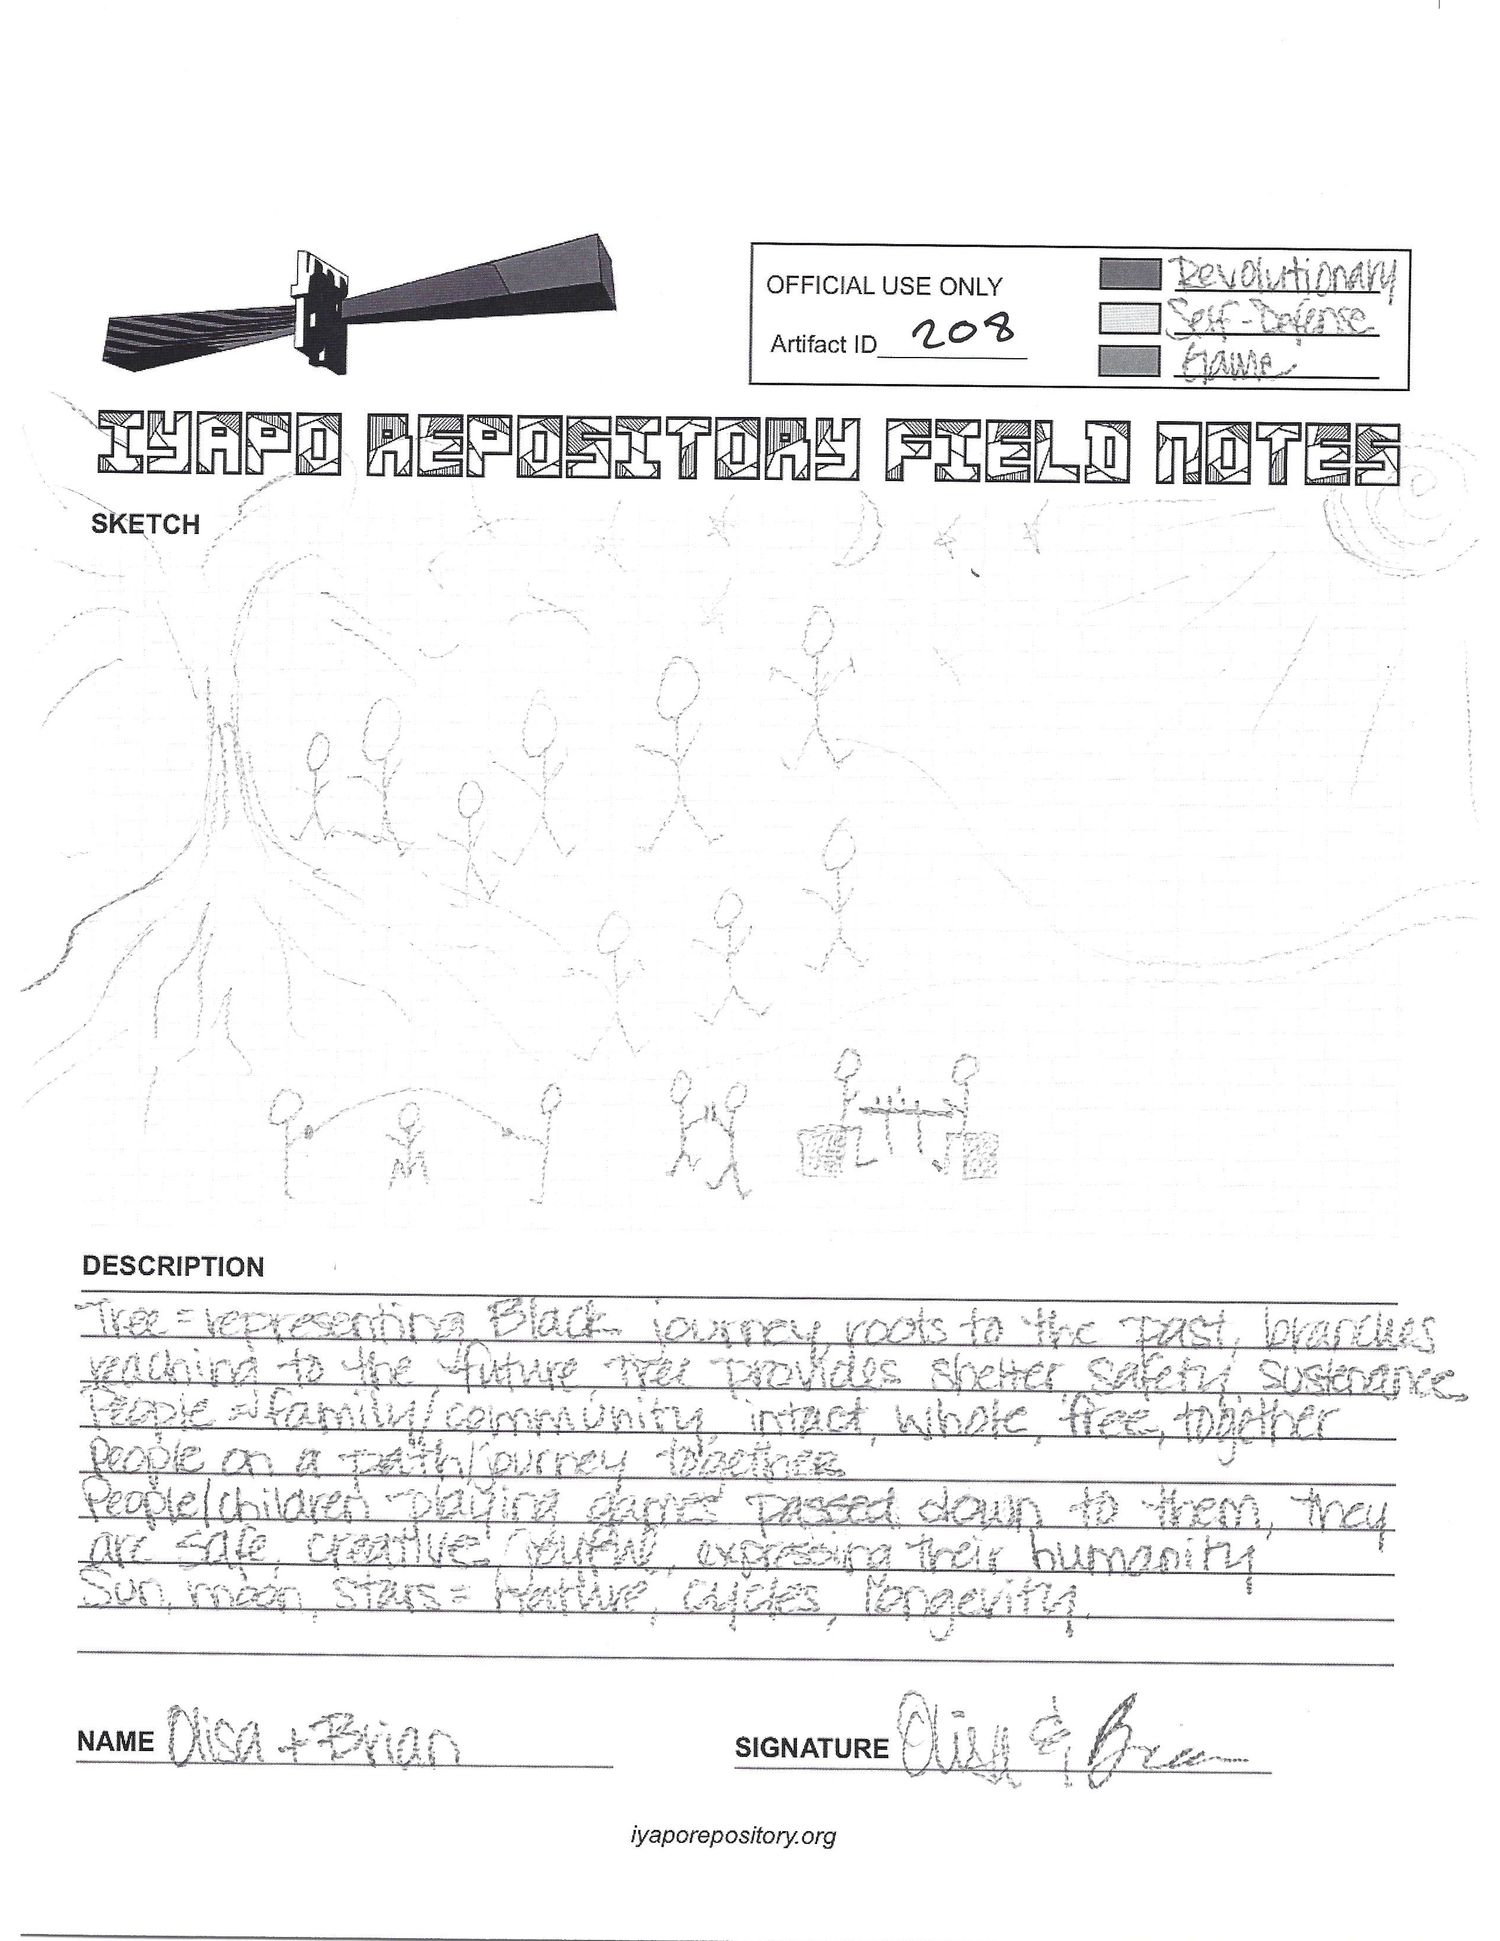 OFFICIAL USE ONLY
Artifact ID 208
Revolutionary
Self-Defense
Game
IYAPO REPOSITORY FIELD NOTES
SKETCH
DESCRIPTION
Tree = representing Black journey roots to the past, branches
reaching to the future Tree provides shelter safety sustenance
People = family/community, intact, whole, free, together
People on a path/journey together
People/children playing games passed down to them, they
are safe, creative, joyful, expressing their humanity
Sun, moon, stars = Nature, cycles, longevity
NAME Olisa + Brian
SIGNATURE Olisa & Brian
iyaporepository.org